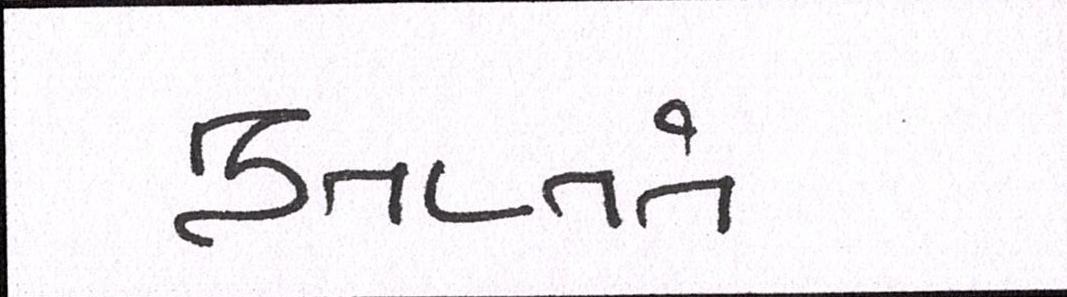 நாடார்